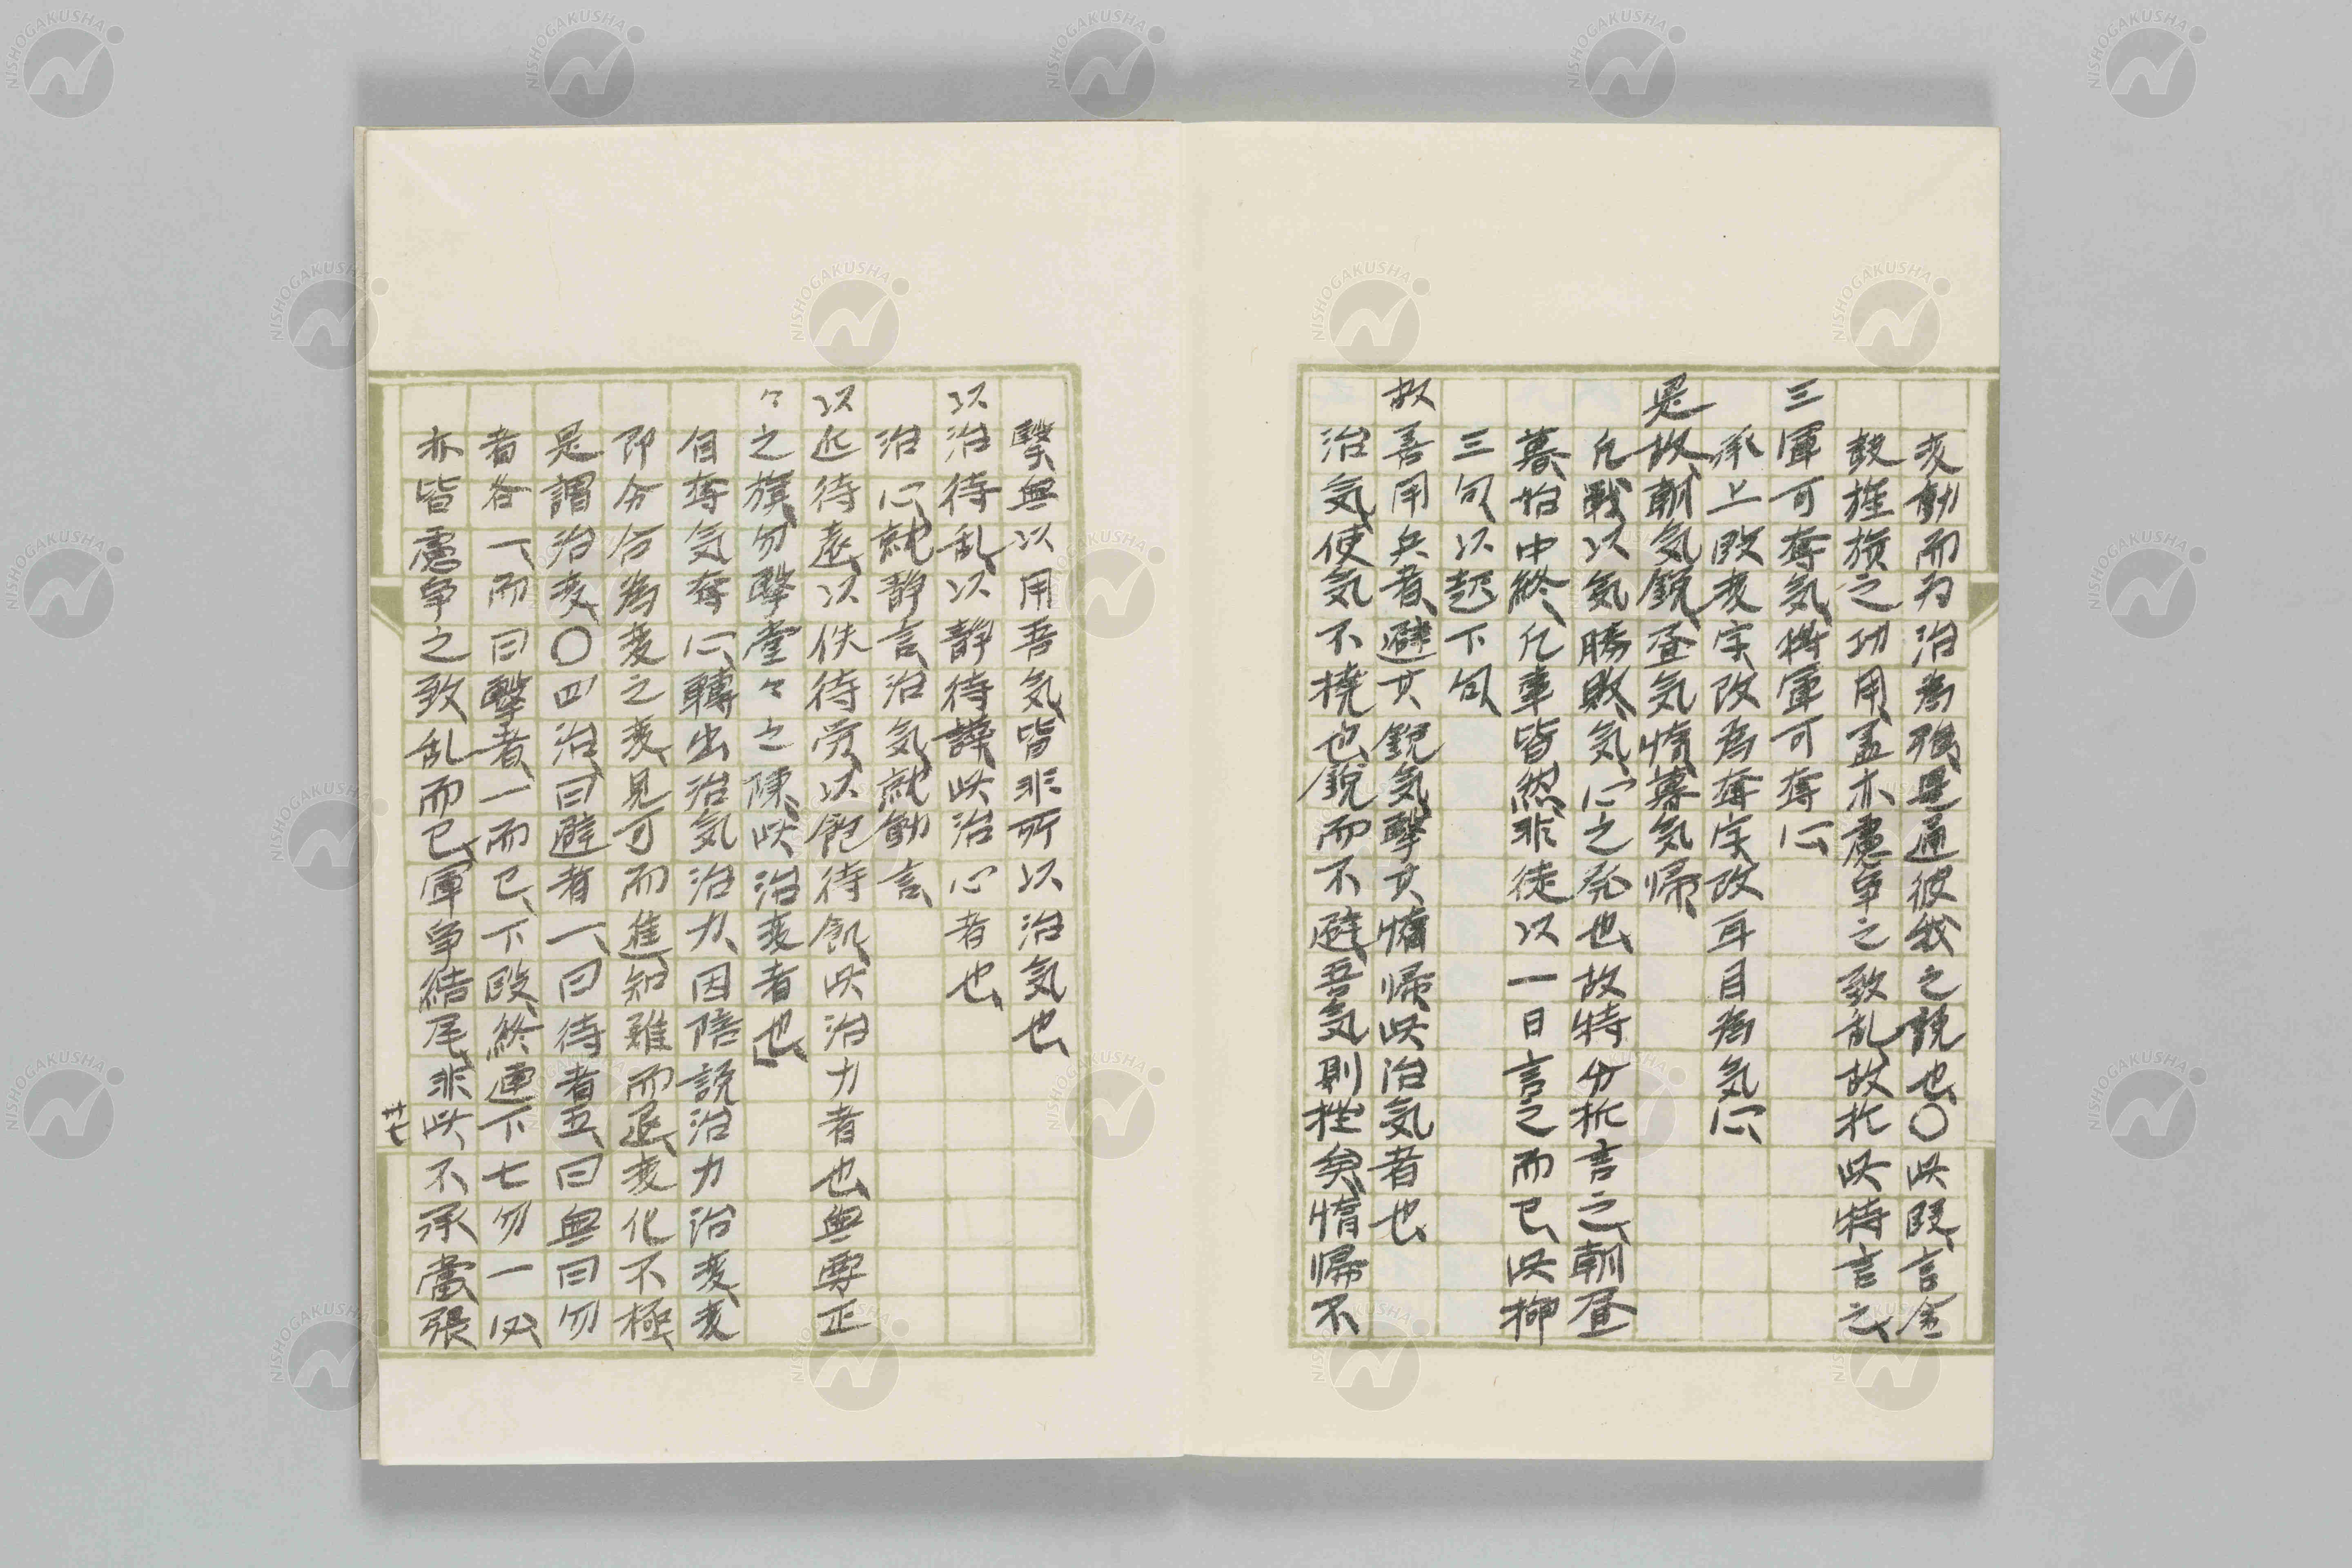 変動而為治為強、是通彼我之説也、〇此段言金
鼓旌旗之功用、盖亦慮争之致乱、故於此特言之、
三軍可奪気、将軍可奪心、
承上段変字改為奪字、改耳目為気心、
是故、朝気鋭、昼気惰、暮気帰、
凡戦以気勝敗、気心之発也、故特分析言之、朝昼
暮、始中終、凡事皆然、非徒以一日言之而已、此抑
三句、以起下句、
故善用兵者、避其鋭気、撃其惰帰、此治気者也、
治気、使気不撓也、鋭而不避、吾気則挫矣、惰帰不
撃、無以用吾気、皆非所以治気也、
以治待乱、以静待譁、此治心者也、
治心就静言、治気就動言、
以近待遠、以佚待労、以飽待飢、此治力者也、無要正
々之旗、勿撃堂々之陳、此治変者也、
自奪気奪心、轉出治気治力、因陪説治力治変、変
即分合為変之変、見可而進、知難而退、変化不極、
是謂治変、〇四治、曰避者一、曰待者五、曰無曰勿
者各一、而曰撃者、一而已、下段、終連下七勿一必、
亦皆慮争之致乱而已、軍争結尾、非此不承當張
廿七
NISHOGAKUSHA